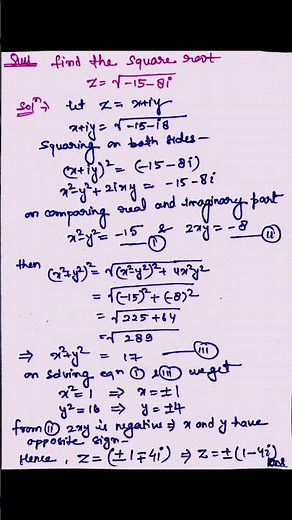 Que find the square root
Z = √-15-8i
Solⁿ⇒ let Z = x+iy
x+iy = √-15-i8
Squaring on both sides–
(x+iy)² = (-15-8i)
x²-y²+2ixy = -15-8i
on comparing real and imaginary part
x²-y² = -15 (i) & 2xy = -8 (ii)
then (x²+y²)² = √(x²-y²)²+4x²y²
= √(-15)²+(-8)²
= √225+64
= √289
⇒ x²+y² = 17 (iii)
on solving eqn (i) & (iii) we get
x² = 1 ⇒ x = ±1
y² = 16 ⇒ y = ±4
from (ii) 2xy is negative ⇒ x and y have
opposite sign–
Hence, Z = (±1∓4i) ⇒ Z = ±(1-4i)
Ans